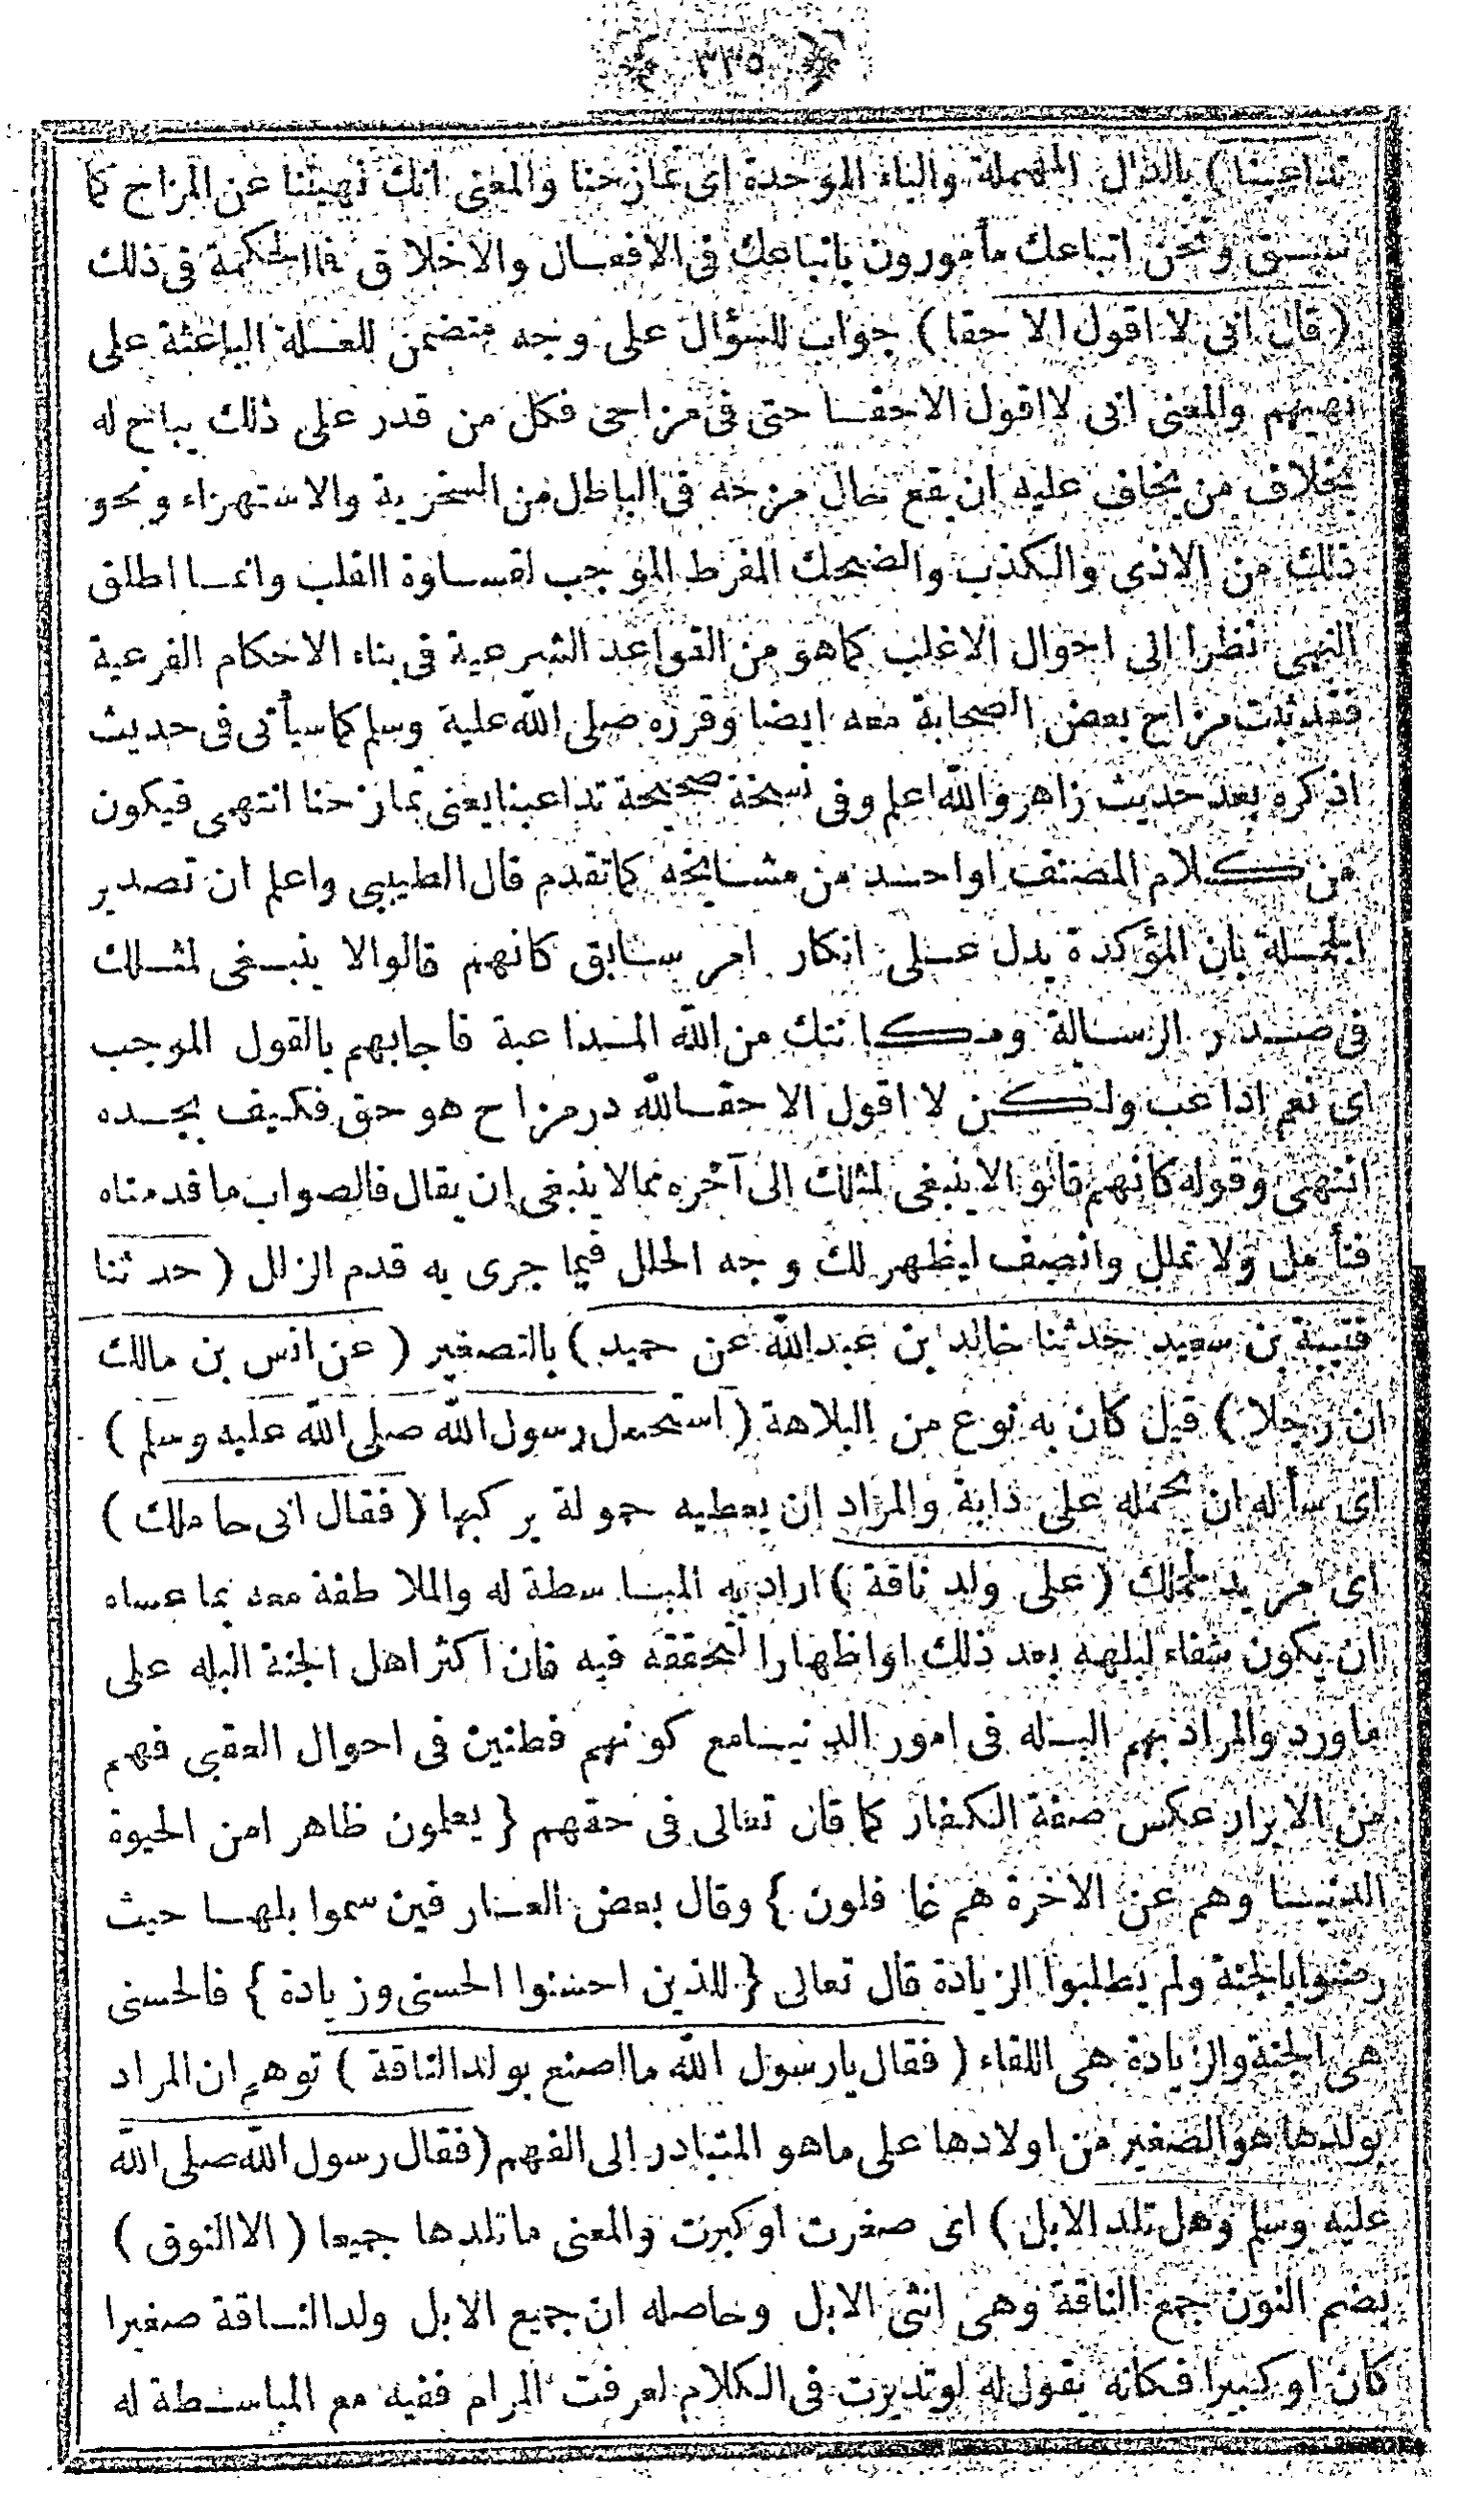 ﴿ ٣٣٥ ﴾
تداعبنا ) بالدال المهملة والباء الموحدة اى تمازحنا والمعنى انك نهيتنا عن المزاح كما
سبق ونحن اتباعك مأمورون باتباعك فى الافعال والاخلاق فما الحكمة فى ذلك
( قال انى لا اقول الا حقا ) جواب للسؤال على وجه متضمن للعلة الباعثة على
نهيهم والمعنى انى لا اقول الا حقا حتى فى مزاحى فكل من قدر على ذلك يباح له
بخلاف من يخاف عليه ان يقع حال مزحه فى الباطل من السخرية والاستهزاء ونحو
ذلك من الاذى والكذب والضحك المفرط الموجب لقساوة القلب وانما اطلق
النهى نظرا الى احوال الاغلب كما هو من القواعد الشرعية فى بناء الاحكام الفرعية
فقد ثبت مزاح بعض الصحابة معه ايضا وقرره صلى الله عليه وسلم كما سيأتى فى حديث
اذكره بعد حديث زاهر والله اعلم وفى نسخة صحيحة تداعبنا يعنى تمازحنا انتهى فيكون
من كلام المصنف او احد من مشايخه كما تقدم قال الطيبى واعلم ان تصدير
الجملة بان المؤكدة يدل على انكار امر سابق كانهم قالوا لا ينبغى لمثلك
فى صدر الرسالة ومكانتك من الله المداعبة فاجابهم بالقول الموجب
اى نعم اداعب ولكن لا اقول الا حقا لله در مزاح هو حق فكيف بجده
انتهى وقوله كانهم قالوا لا ينبغى لمثلك الى آخره مما لا ينبغى ان يقال فالصواب ما قدمناه
فتأمل ولا تملل وانصف ليظهر لك وجه الخلل فيما جرى به قدم الزلل ( حدثنا
قتيبة بن سعيد حدثنا خالد بن عبد الله عن حميد ) بالتصغير ( عن انس بن مالك
ان رجلا ) قيل كان به نوع من البلاهة ( استحمل رسول الله صلى الله عليه وسلم )
اى سأله ان يحمله على دابة والمراد ان يعطيه حمولة يركبها ( فقال انى حاملك )
اى مريد لحملك ( على ولد ناقة ) اراد به المباسطة له والملاطفة معه بما عساه
ان يكون شفاء لبلهه بعد ذلك او اظهارا لتحققه فيه فان اكثر اهل الجنة البله على
ما ورد والمراد بهم البله فى امور الدنيا مع كونهم فطنين فى احوال العقبى فهم
من الابرار عكس صفة الكفار كما قال تعالى فى حقهم { يعلمون ظاهرا من الحيوة
الدنيا وهم عن الاخرة هم غافلون } وقال بعض العار فين سموا بلها حيث
رضوا بالجنة ولم يطلبوا الزيادة قال تعالى { للذين احسنوا الحسنى وزيادة } فالحسنى
هى الجنة والزيادة هى اللقاء ( فقال يا رسول الله ما اصنع بولد الناقة ) توهم ان المراد
بولدها هو الصغير من اولادها على ما هو المتبادر الى الفهم ( فقال رسول الله صلى الله
عليه وسلم وهل تلد الابل ) اى صغرت او كبرت والمعنى ما تلدها جميعا ( الا النوق )
بضم النون جمع الناقة وهى انثى الابل وحاصله ان جميع الابل ولد الناقة صغيرا
كان او كبيرا فكانه يقول له لو تدبرت فى الكلام لعرفت المرام ففيه مع المباسطة له